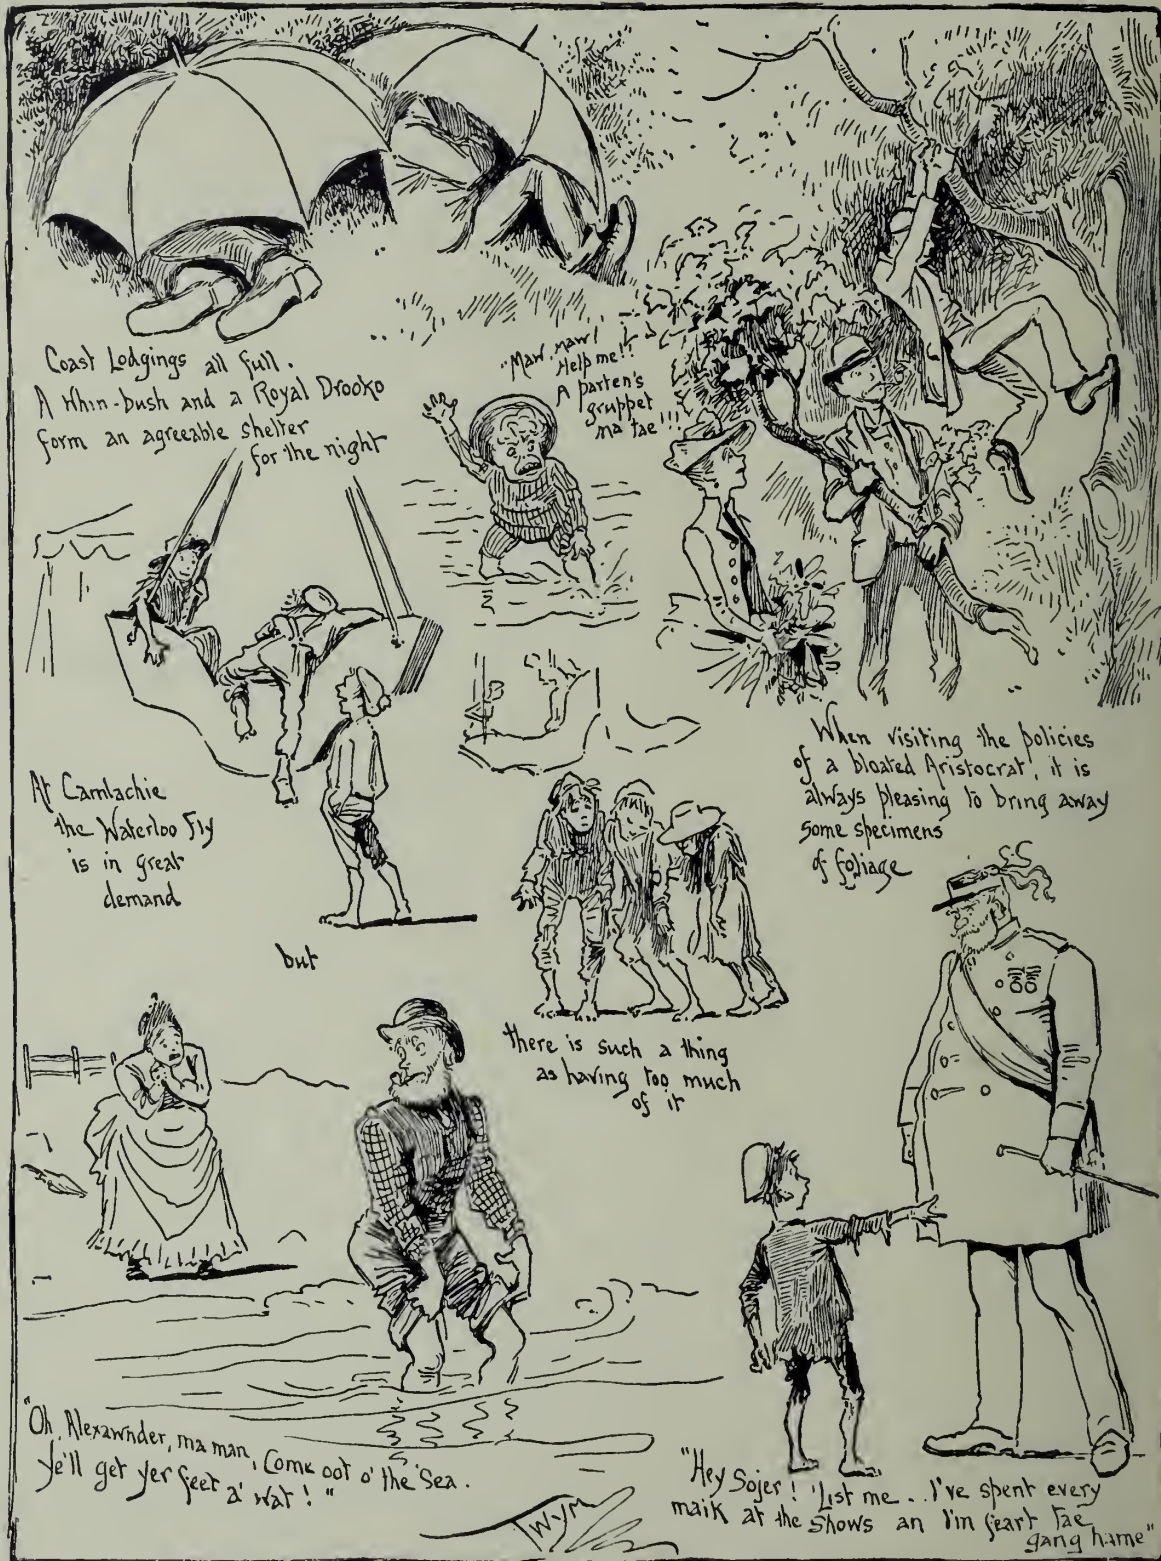 Coast Lodgings all full.
A Whin-bush and a Royal Drooko
form an agreeable shelter
for the night
"Maw, maw!
Help me!!
A parten's
gruppet
ma tae"!!!
When visiting the policies
of a bloated Aristocrat, it is
always pleasing to bring away
some specimens
of foliage
At Camlachie
the Waterloo Fly
is in great
demand
but
there is such a thing
as having too much
of it
"Oh, Alexawnder, ma man, Come oot o' the Sea.
Ye'll get yer feet a' wat!"
"Hey Sojer! 'List me... I've spent every
maik at the shows an I'm feart tae
gang hame"
Twym